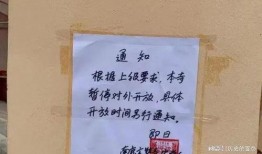 通知
根据上级要求，本寺
暂停对外开放，具体
开放时间另行通知。
即日